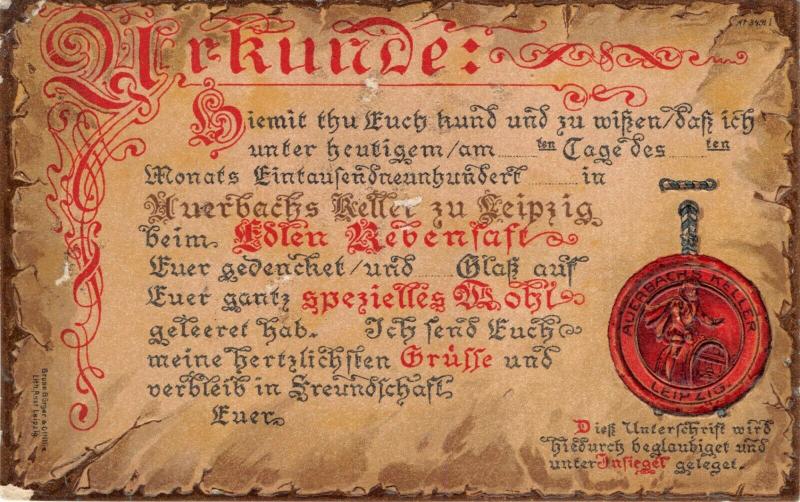 Urkunde:
Hiemit thu Euch kund und zu wißen/daß ich
unter heutigem/am ten Tage des ten
Monats Eintausendneunhundert in
Auerbachs Keller zu Leipzig
beim Edlen Rebensaft
Euer gedencket/und Glaß auf
Euer gantz spezielles Wohl
geleeret hab. Ich send Euch
meine hertzlichsten Grüsse und
verbleib in Freundschaft
Euer
AUERBACHS KELLER
LEIPZIG
Dieß Unterschrift wird
hiedurch beglaubiget und
unter Insiegel geleget.
Lith. Anst. Leipzig